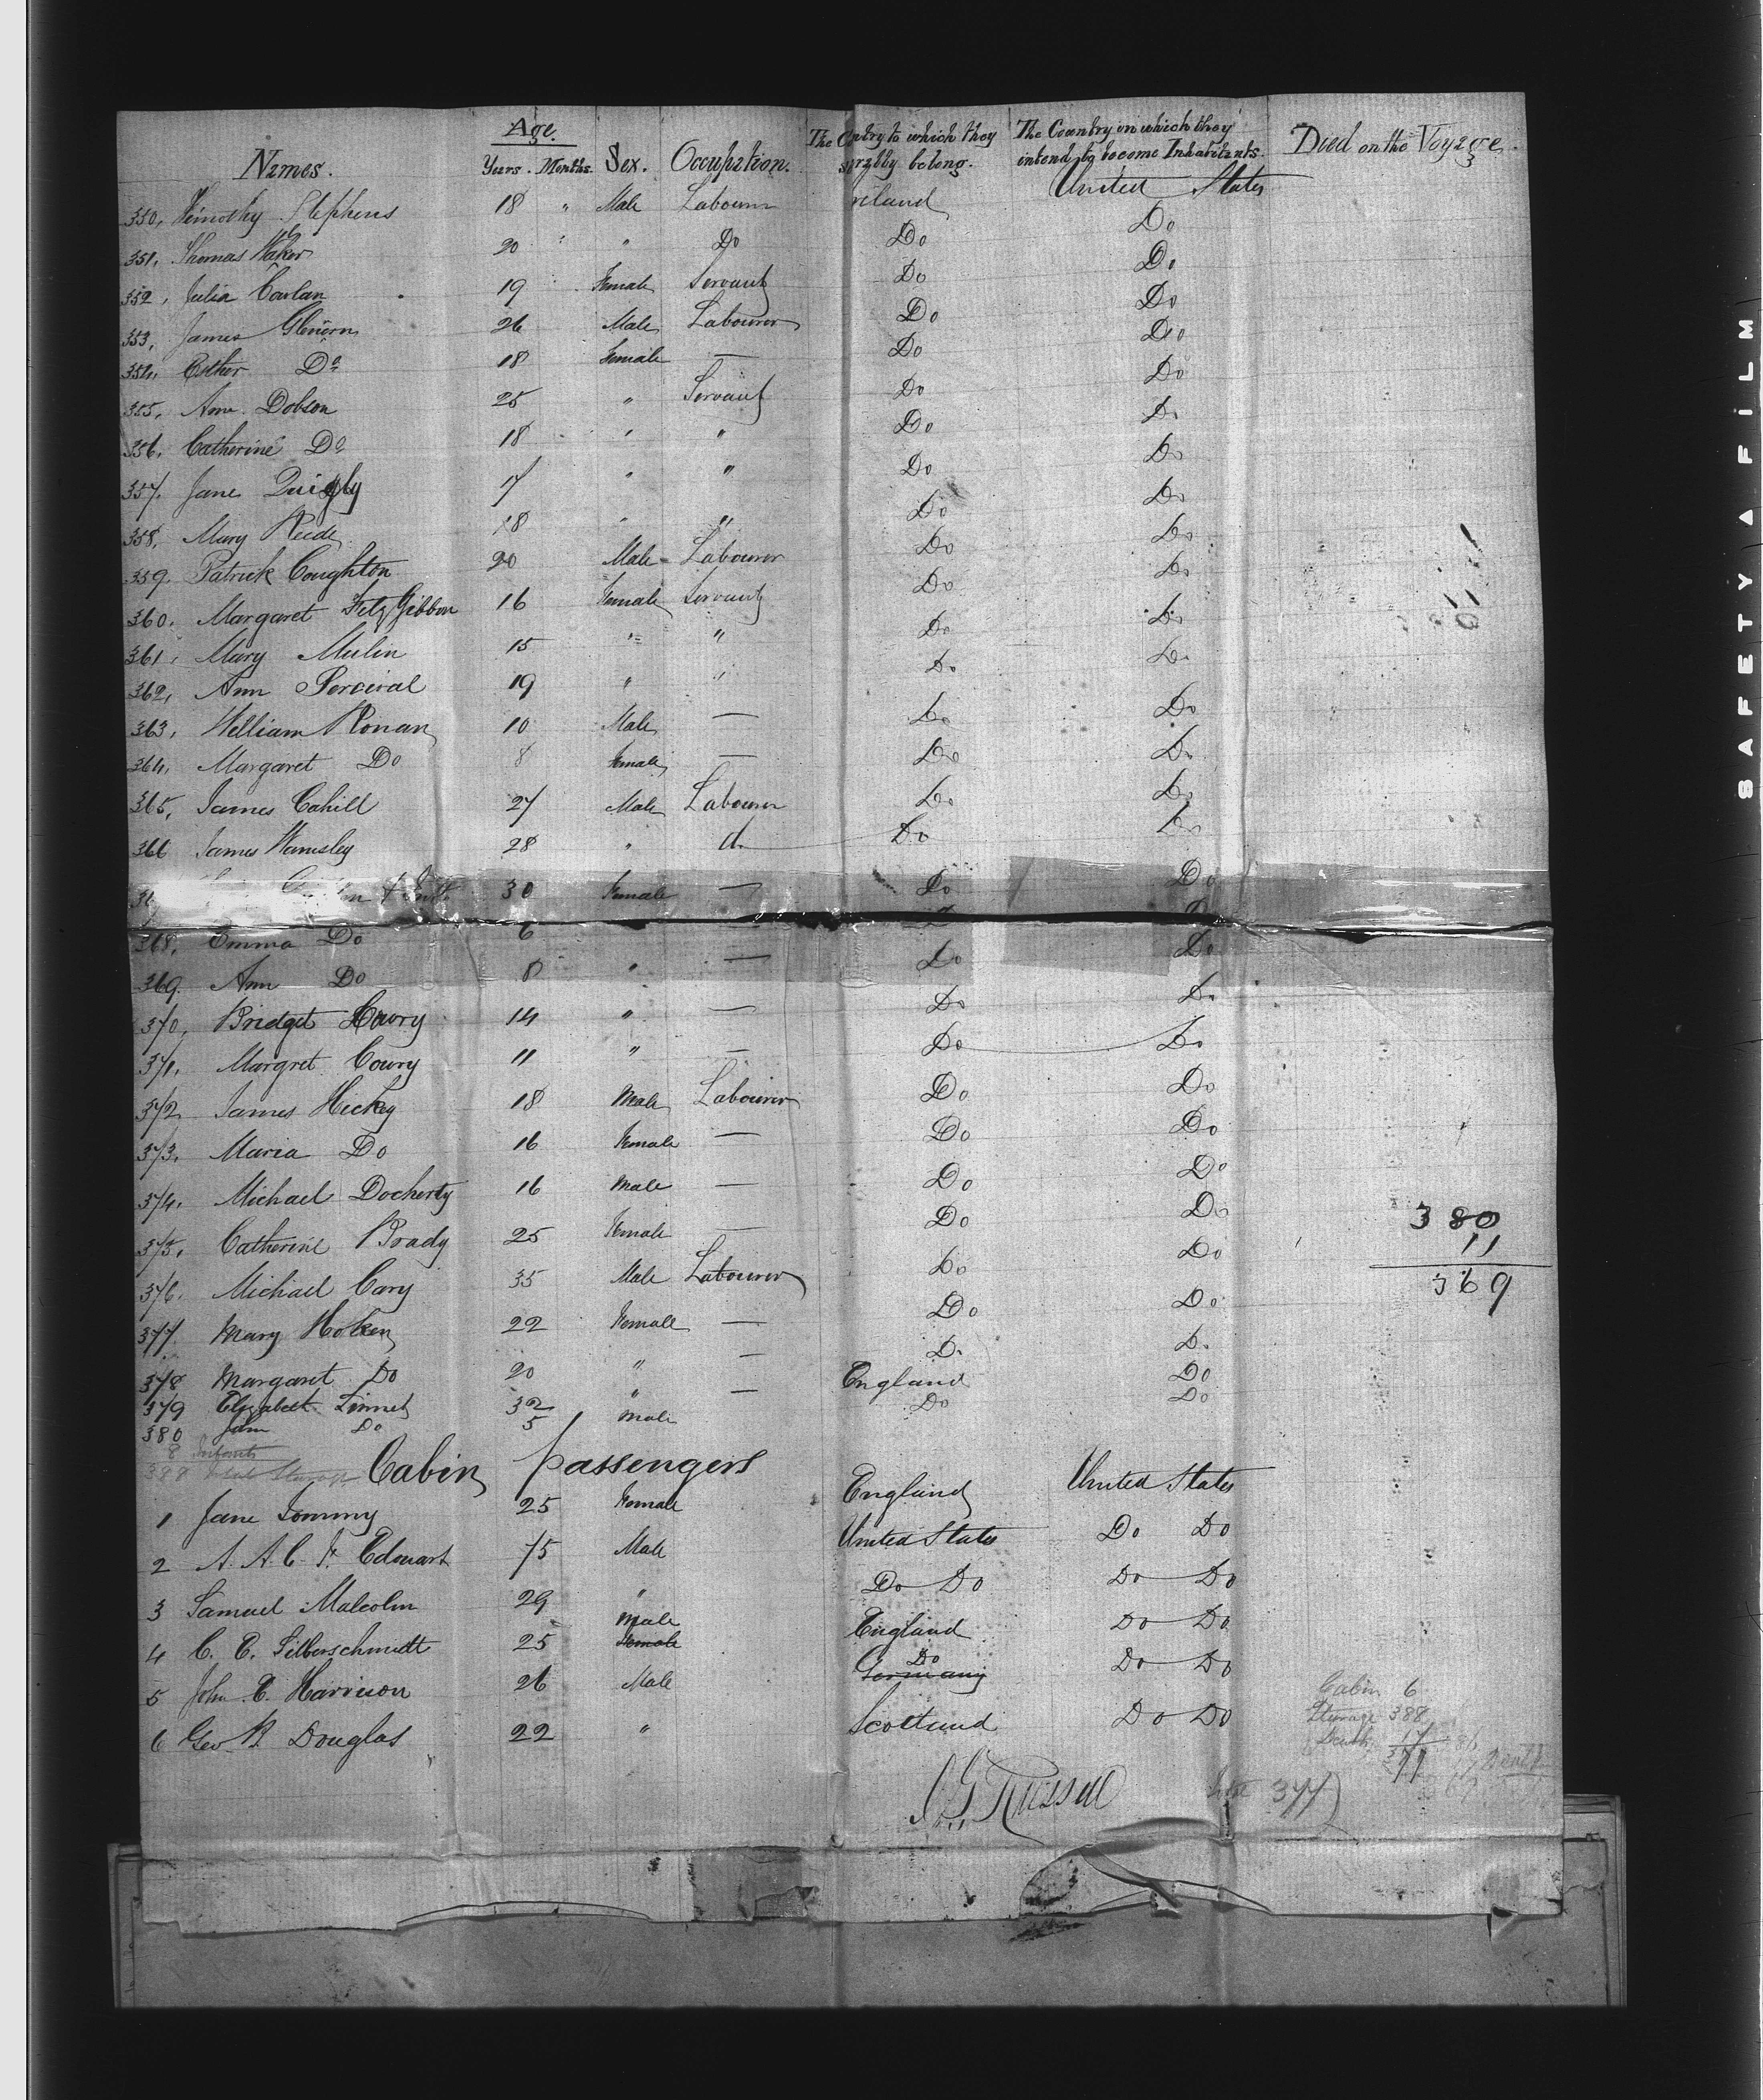 Names. Age. Years. Months. Sex. Occupation. The Country to which they severally belong. The Country in which they intend to become Inhabitants. Died on the Voyage.
350. Timothy Stephens 18 " Male Labourer Ireland United States
351. Thomas Waker 20 " " Do Do Do
352, Julia Carlan 19 Female Servant Do Do
353, James Glenorn 26 Male Labourer Do Do
354, Esther Do 18 Female — Do Do
355, Ann Dobson 25 " Servant Do Do
356, Catherine Do 18 " " Do Do
357. Jane Quigly 17 " " Do Do
358, Mary Reede 18 " " Do Do
359. Patrick Coughton 20 Male Labourer Do Do
360. Margaret FitzGibbon 16 Female Servant Do Do
361, Mary Mulin 15 " " Do Do
362, Ann Percival 19 " " Do Do
363, William Ronan 10 Male — Do Do
364, Margaret Do 8 Female — Do Do
365, James Cahill 27 Male Labourer Do Do
366 James Wamsley 28 " d. Do Do
30 Female — Do Do
368, Emma Do 6
369. Ann Do 8 " — Do Do
370, Bridget Lowry 14 " — Do Do
371, Margret Cowry 11 " — Do Do
372 James Hickey 18 Male Labourer Do Do
373. Maria Do 16 Female — Do Do
374. Michael Docherty 16 Male — Do Do
375, Catherine Brady 25 Female — Do Do
376. Michael Cary 35 Male Labourer Do Do
377 Mary Hoken 22 Female — Do Do
378 Margaret Do 20 " — Do Do
379 Elizabeth Linnet 32 " — England Do
380 John Do 5 Male Do Do
380
11
369
8 Infants
388
Cabin passengers
1 Jane Tommy 25 Female England United States
2 A. A. C. Jr Edouart 75 Male United States Do Do
3 Samuel Malcolm 29 " Do Do Do Do
4 C. E. Silberschmidt 25 Male Female England Do Do
5 John E. Harrison 26 Male Do Germany Do Do
6 Geo R Douglas 22 " Scotland Do Do
Cabin 6
Steerage 388
Death 17
377
J G Russell
377
SAFETY FILM